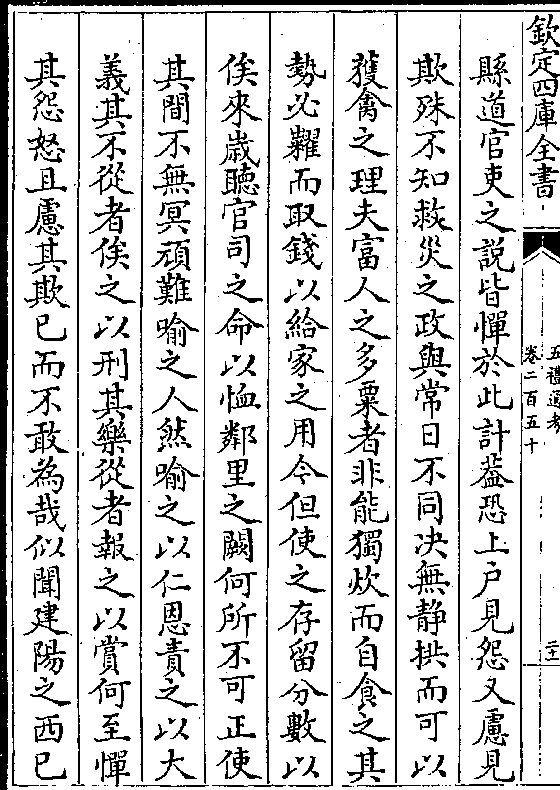 欽定四庫全書
五禮通考
卷二百五十
縣道官吏之說皆憚於此計葢恐上户見怨又慮見
欺殊不知救災之政與常日不同決無静拱而可以
獲禽之理夫富人之多粟者非能獨炊而自食之其
勢必糶而取錢以給家之用今但使之存留分數以
俟來歲聽官司之命以恤鄰里之闕何所不可正使
其間不無冥頑難喻之人然喻之以仁恩責之以大
義其不從者俟之以刑其樂從者報之以賞何至憚
其怨怒且慮其欺已而不敢為哉似聞建陽之西已